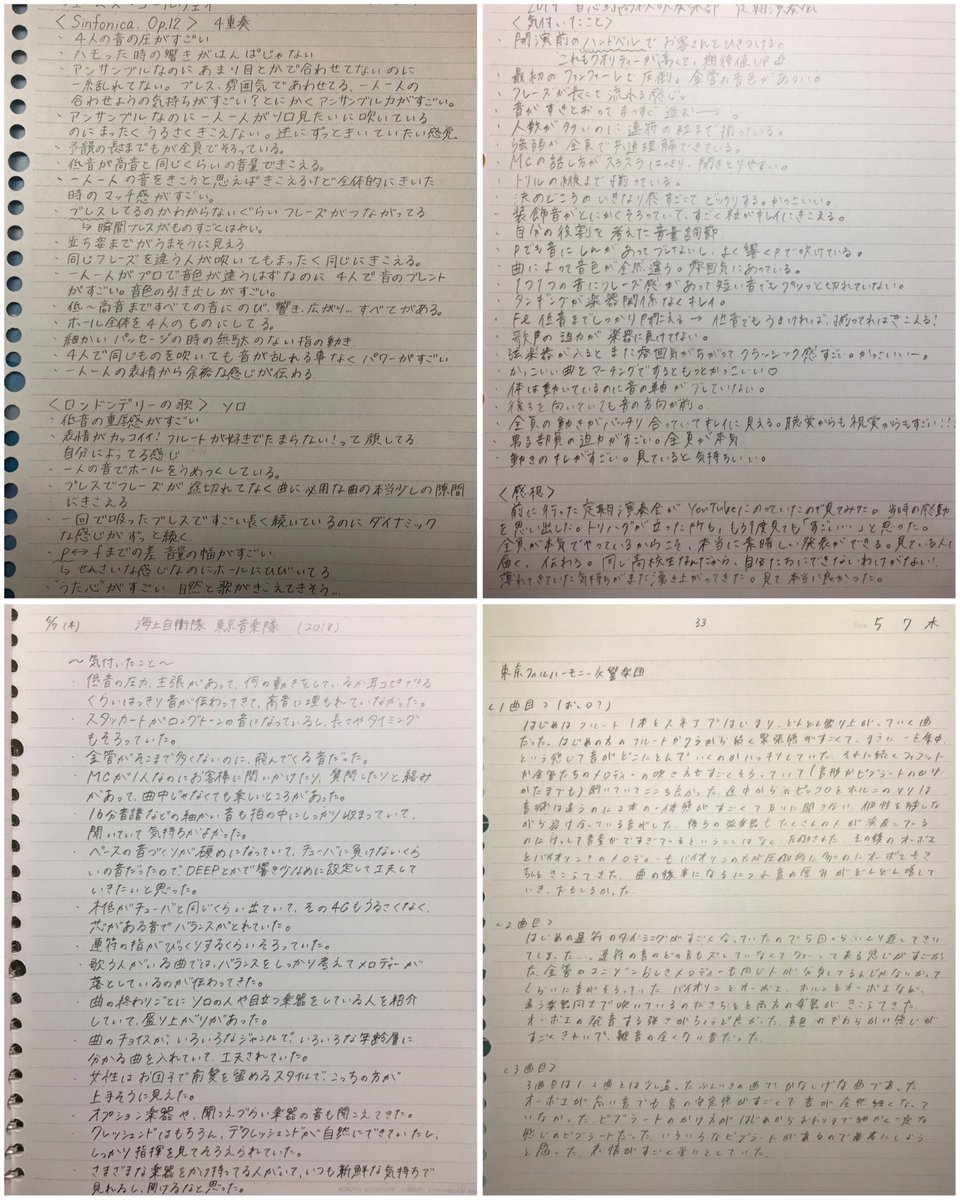 <Sinfonica. Op.12> 4重奏
・4人の音の圧がすごい
・ハモった時の響きがはんぱじゃない
・アンサンブルなのにあまり目とかで合わせてないのに
一糸乱れてない。ブレス、雰囲気であわせてる、一人一人の
合わせようの気持ちがすごい?とにかくアンサンブル力がすごい。
・アンサンブルなのに一人一人がソロ見たいに吹いている
のにまったくうるさくきこえない。逆にずっときいていたい感覚
・予韻の長さまでもが全員でそろっている。
・低音が高音と同じくらいの音量できこえる。
・一人一人の音をきこうと思えばきこえるけど全体的にきいた
時のマッチ感がすごい。
・ブレスしてるのかわからないぐらいフレーズがつながってる
↳瞬間ブレスがものすごくはやい。
・立ち姿までがうまそうに見える
・同じフレーズを違う人が吹いてもまったく同じにきこえる。
・一人一人がプロで音色が違うはずなのに4人で音のブレンド
がすごい。音色の引き出しがすごい。
・低〜高音まですべての音にのび、響き、広がり、すべてがある。
・ホール全体を4人のものにしてる。
・細かいパッセージの時の無駄のない指の動き
・4人で同じものを吹いても音が乱れる事なくパワーがすごい
・一人一人の表情から余裕な感じが伝わる
<ロンドンデリーの歌> ソロ
・低音の重厚感がすごい
・表情がカッコイイ!フルートが好きでたまらない!って顔してる
自分によってる感じ
・一人の音でホールをうめつくしている。
・ブレスでフレーズが途切れてなく曲に必用な曲の本当少しの隙間
にきこえる
・一回で吸ったブレスですごい長く続いているのにダイナミック
な感じがずっと続く
・p⇔fまでの差 音量の幅がすごい
↳せんさいな感じなのにホールにひびいてる
"うた心"がすごい 自然と歌がきこえてきそう…
<気付いたこと>
・開演前のハンドベルでお客さんをひきつける。
これもクオリティーが高くて、期待値UP
・最初のファンファーレで圧倒。金管の音色があつい。
・フレーズが長くて流れる感じ。
・音がすきとおってまっすぐ進む
・人数が多いのに連符の粒まで揃っている。
・強弱が全員で共通理解できている。
・MCの話し方がスラスラはっきり、聞きとりやすい。
・トリルの線まで揃っている。
・決めどころのいきなり感すごくてビックリする。かっこいい。
・装飾音がとにかくそろっていて、すごく粒がキレイにきこえる。
・自分の役割を考えた音量調節
・Pでも音にしんがあってブレないし、よく響くPで吹けている。
・曲によって音色が全然違う。雰囲気にあっている。
・1つ1つの音にフレーズ感があって短い音でもプツッと切れていない。
・タンギングが楽器関係なくキレイ。
・歌声の迫力が楽器に負けてない。
・弦楽器が入るとまた雰囲気がちがってクラッシック感すごい。かっこいいー。
・かっこいい曲をマーチングでするともっとかっこいい♡
・体は動いているのに音の軸がブレていない。
・後ろを向いていても音の方向が前。
・全員の動きがバッチリ合っていてキレイに見える。聴覚からも視覚からもすごい!!!
・男子部員の迫力がすごい。全員が本気
・動きのキレがすごい。見ていると気持ちいい。
<感想>
前に行った定期演奏会がYouTubeにのっていたので見てみた。当時の感動
を思い出した。トリハダが立った所も、もう1度見ても「すごい…」と思った。
全員が本気でやっているからこそ、本当に素晴しい発表ができる。見ている人に
届く、伝わる。同じ高校生なんだから、自分たちにできないわけがない!
薄れてきていた気持ちがまた湧き上がってきた。見て本当に良かった。
5/7(木) 海上自衛隊 東京音楽隊 (2018)
〜気付いたこと〜
・低音の圧力、主張があって、何の動きをしているか耳コピできる
くらいはっきり音が伝わってきて、高音に埋もれていなかった。
・スタッカートがロングトーンの音になっているし、長さやタイミング
もそろっていた。
・金管がそこまで多くないのに、飛んでくる音だった。
・MCが1人なのにお客様に問いかけたり、質問したりと絡み
があって、曲中じゃなくても楽しいところがあった。
・16分音譜などの細かい音も拍の中にしっかり収まっていて、
聞いていて気持ちがよかった。
・ベースの音づくりが硬めになっていて、チューバに負けないくら
いの音だったので、DEEPとかで響き少なめに設定して工夫して
いきたいと思った。
・木低がチューバと同じくらい出ていて、その4Gもうるさくなく、
芯がある音でバランスがとれていた。
・連符の指がびっくりするくらいそろっていた。
・歌う人がいる曲では、バランスをしっかり考えてメロディーが
落としているのが伝わってきた。
・曲の終わりごとにソロの人や目立つ楽器をしている人を紹介
していて、盛り上がりがあった。
・曲のチョイスが、いろいろなジャンルで、いろいろな年齢層に
分かる曲を入れていて、工夫されていた。
・女性はお団子で前髪を留めるスタイルで、こっちの方が
上手そうに見えた。
・オプション楽器や、聞こえづらい楽器の音も聞こえてきた。
・クレッシェンドはもちろん、デクレッシェンドが自然にできていたし、
しっかり指揮を見てそろえられていた。
・さまざまな楽器をかけ持ってる人がいて、いつも新鮮な気持ちで
見れるし、聞けるなと思った。
33
5 7 木
東京フィルハーモニー交響楽団
<1曲目>
はじめはフルート1本とスネアではじまり、どんどん盛り上がっていく曲
だった。はじめの方のフルートが
<2曲目>
オーボエの発音する強さがちょうど良かった。音色のやわらかい感じが
すごくきれいで、雑音の全くない音だった。
<3曲目>
3曲目は1、2曲とは少し違ったふんいきの曲で、かなしげな曲であった。
オーボエが高い音でも音の安定感がすごくて音が全然細くなっ
ていなかった。
と思った。表情がすごく豊にしていた。